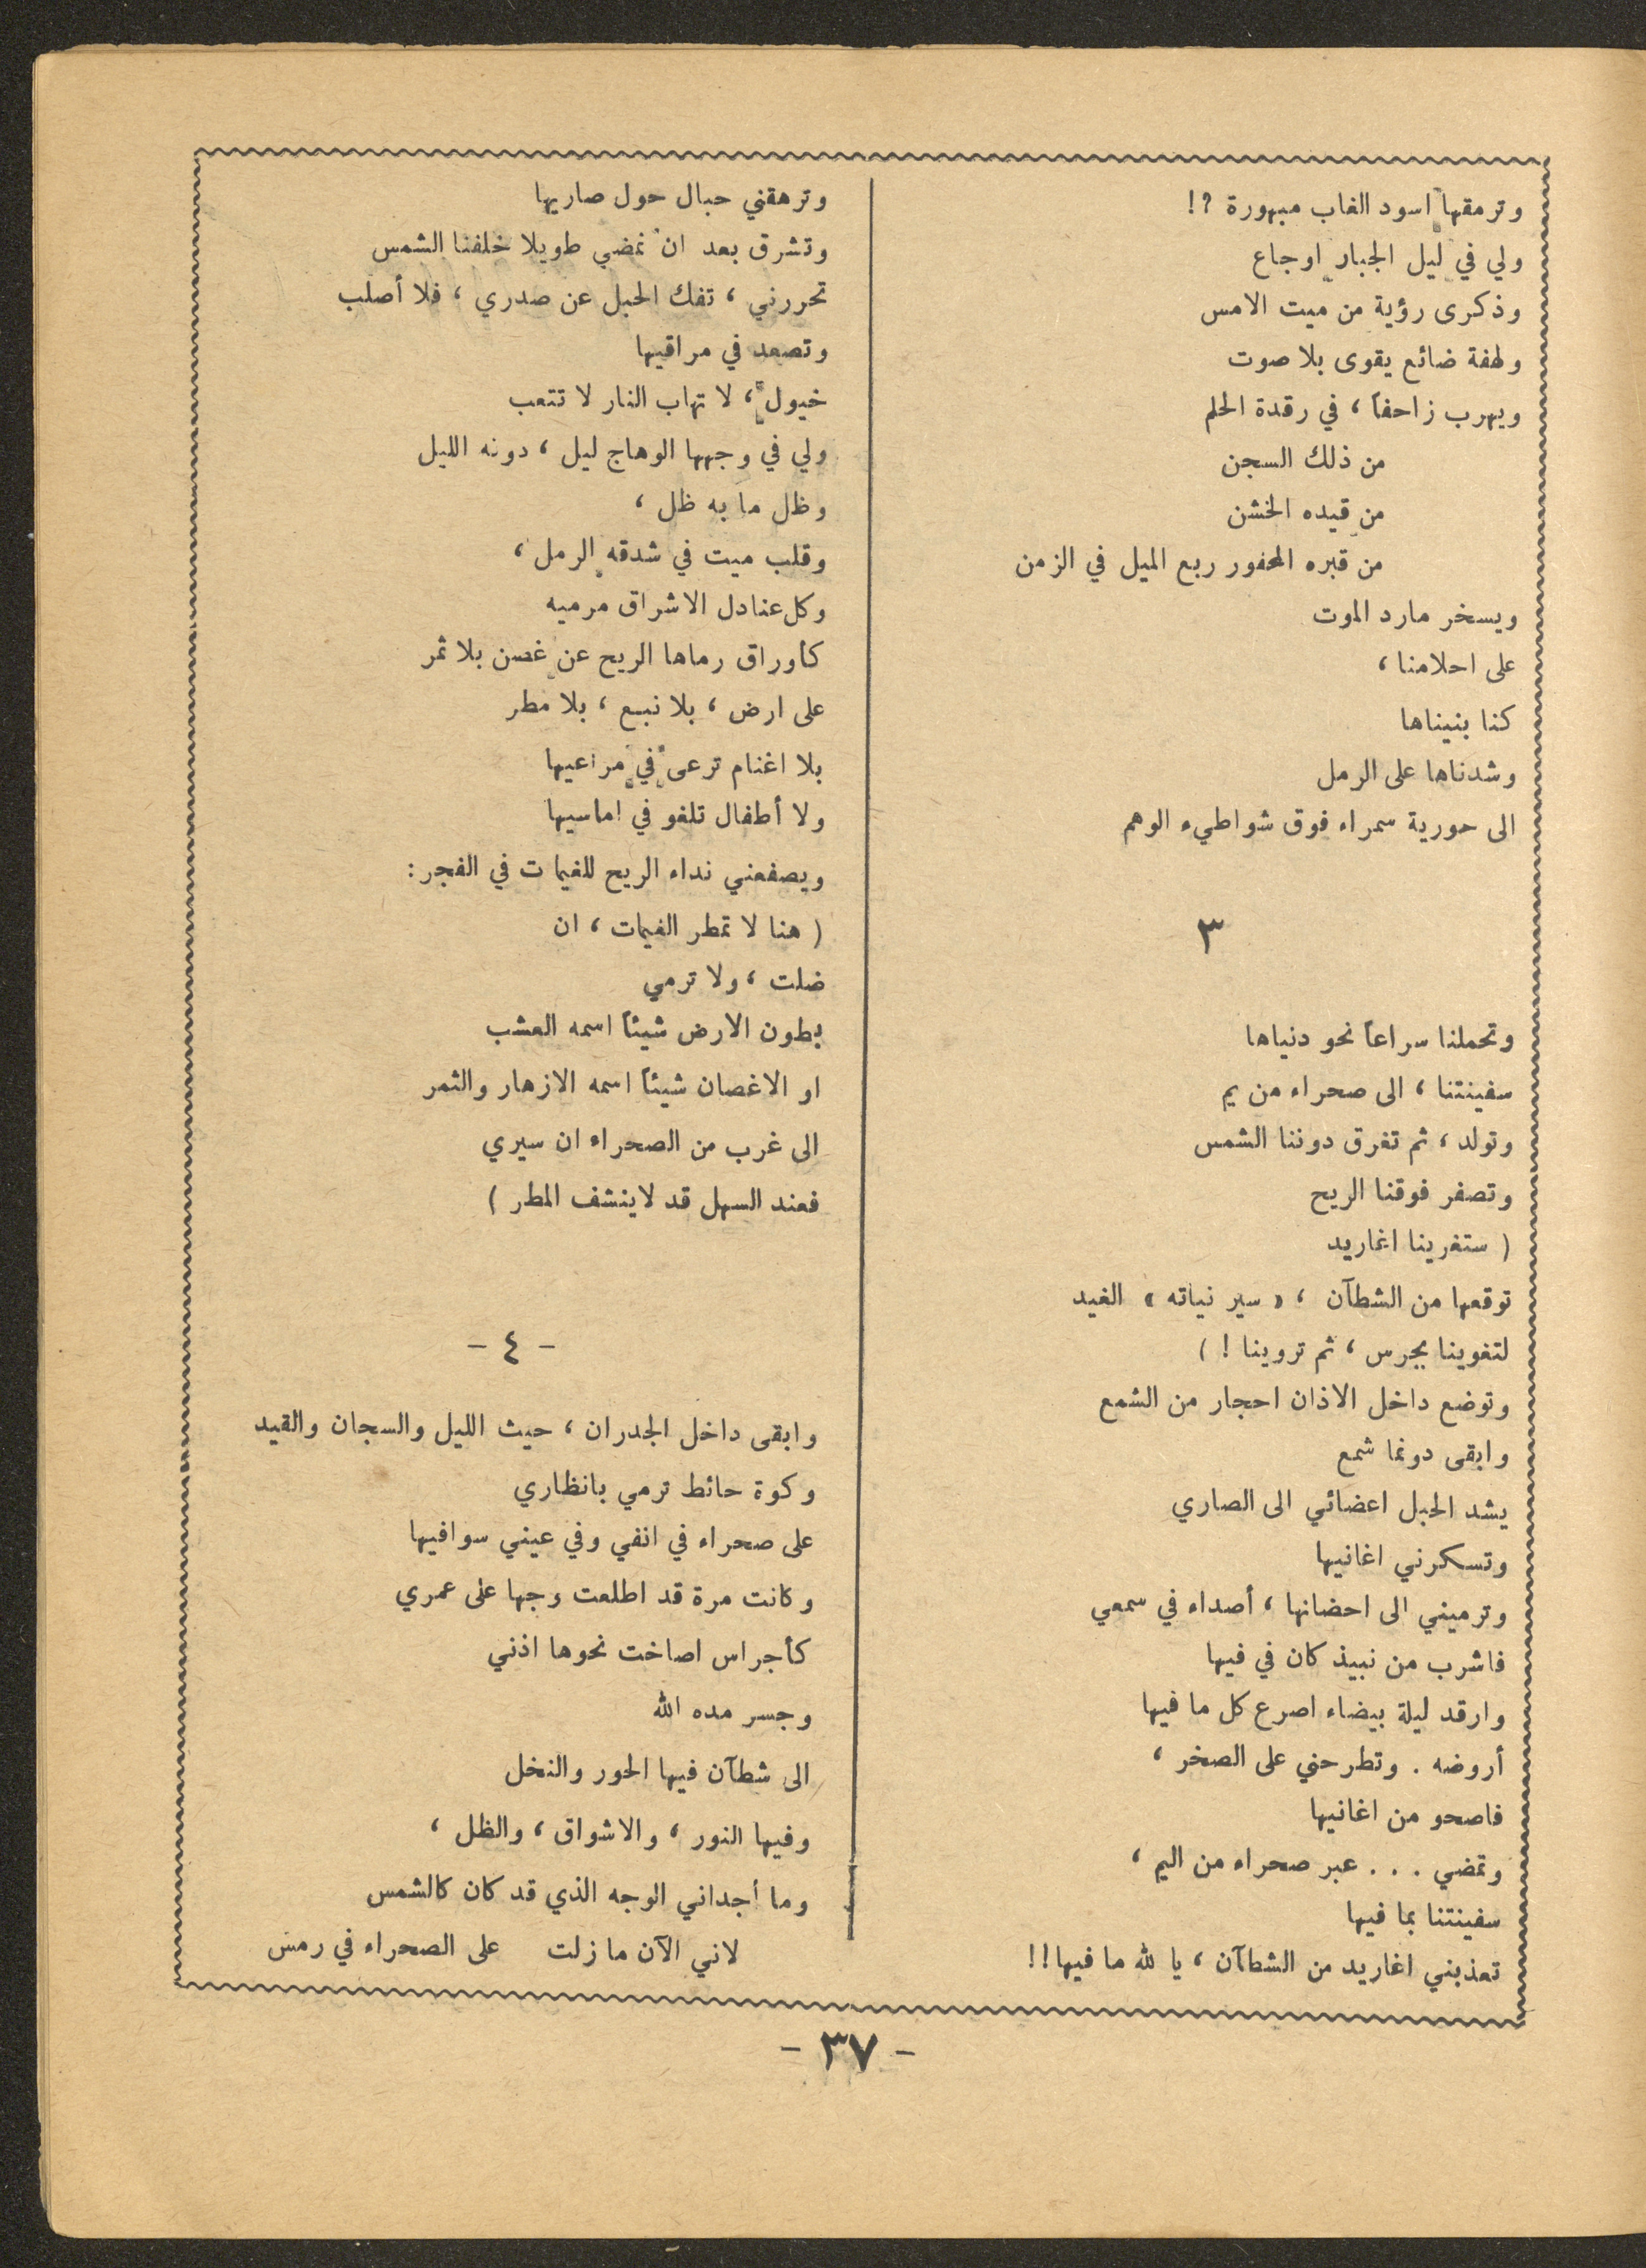 وترمقها اسود الغاب مبهورة ?!
ولي في ليل الجبار اوجاع
وذكرى رؤية من ميت الامس
ولهفة ضائع يقوى بلا صوت
ويهرب زاحفاً ، في رقدة الحلم
من ذلك السجن
من قيده الخشن
من قبره المحفور ربع الميل في الزمن
ويسخر مارد الموت
على احلامنا ،
كنا بنيناها
وشدناها على الرمل
الى حورية سمراء فوق شواطيء الوهم
٣
وتحملنا سراعاً نحو دنياها
سفينتنا ، الى صحراء من يم
وتولد ، ثم تغرق دوننا الشمس
وتصفر فوقنا الريح
( ستغرينا اغاريد
توقعها من الشطآن ، « سير نياته » الغيد
لتغوينا بجرس ، ثم تروينا ! )
وتوضع داخل الاذان احجار من الشمع
وابقى دونما شمع
يشد الحبل اعضائي الى الصاري
وتسكرني اغانيها
وترميني الى احضانها ، أصداء في سمعي
فاشرب من نبيذ كان في فيها
وارقد ليلة بيضاء اصرع كل ما فيها
أروضه . وتطرحني على الصخر ،
فاصحو من اغانيها
وتمضي . . . عبر صحراء من اليم ،
سفينتنا بما فيها
تعذبني اغاريد من الشطآن ، يا لله ما فيها!!
وترهقني حبال حول صاريها
وتشرق بعد ان نمضي طويلا خلفنا الشمس
تحررني ، تفك الحبل عن صدري ، فلا أصلب
وتصعد في مراقيها
خيول ، لا تهاب النار لا تتعب
ولي في وجهها الوهاج ليل ، دونه الليل
وظل ما به ظل ،
وقلب ميت في شدقه الرمل ،
وكل عنادل الاشراق مرميه
كأوراق رماها الريح عن غصن بلا ثمر
على ارض ، بلا نبع ، بلا مطر
بلا اغنام ترعى في مراعيها
ولا أطفال تلغو في اماسيها
ويصفعني نداء الريح للغيمات في الفجر :
( هنا لا تمطر الغيمات ، ان
ضلت ، ولا ترمي
بطون الارض شيئاً اسمه العشب
او الاغصان شيئاً اسمه الازهار والثمر
الى غرب من الصحراء ان سيري
فعند السهل قد لاينشف المطر )
- ٤ -
وابقى داخل الجدران ، حيث الليل والسجان والقيد
وكوة حائط ترمي بانظاري
على صحراء في انفي وفي عيني سوافيها
وكانت مرة قد اطلعت وجها على عمري
كأجراس اصاخت نحوها اذني
وجسر مده الله
الى شطآن فيها الحور والنخل
وفيها النور ، والاشواق ، والظل ،
وما أجداني الوجه الذي قد كان كالشمس
لاني الآن ما زلت على الصحراء في رمس
- ٣٧ -